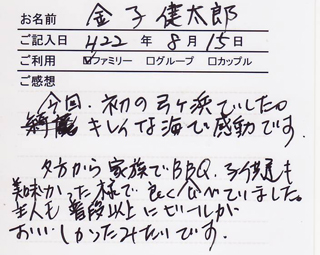 お名前 金子健太郎
ご記入日 422 年 8 月 15 日
ご利用 ☑ファミリー □グループ □カップル
ご感想
今回、初の弓ヶ浜でした。
キレイな海で感動です。
夕方から家族でBBQ、子供達も
美味かった様で良く食べていました。
主人も普段以上にビールが
おいしかったみたいです。